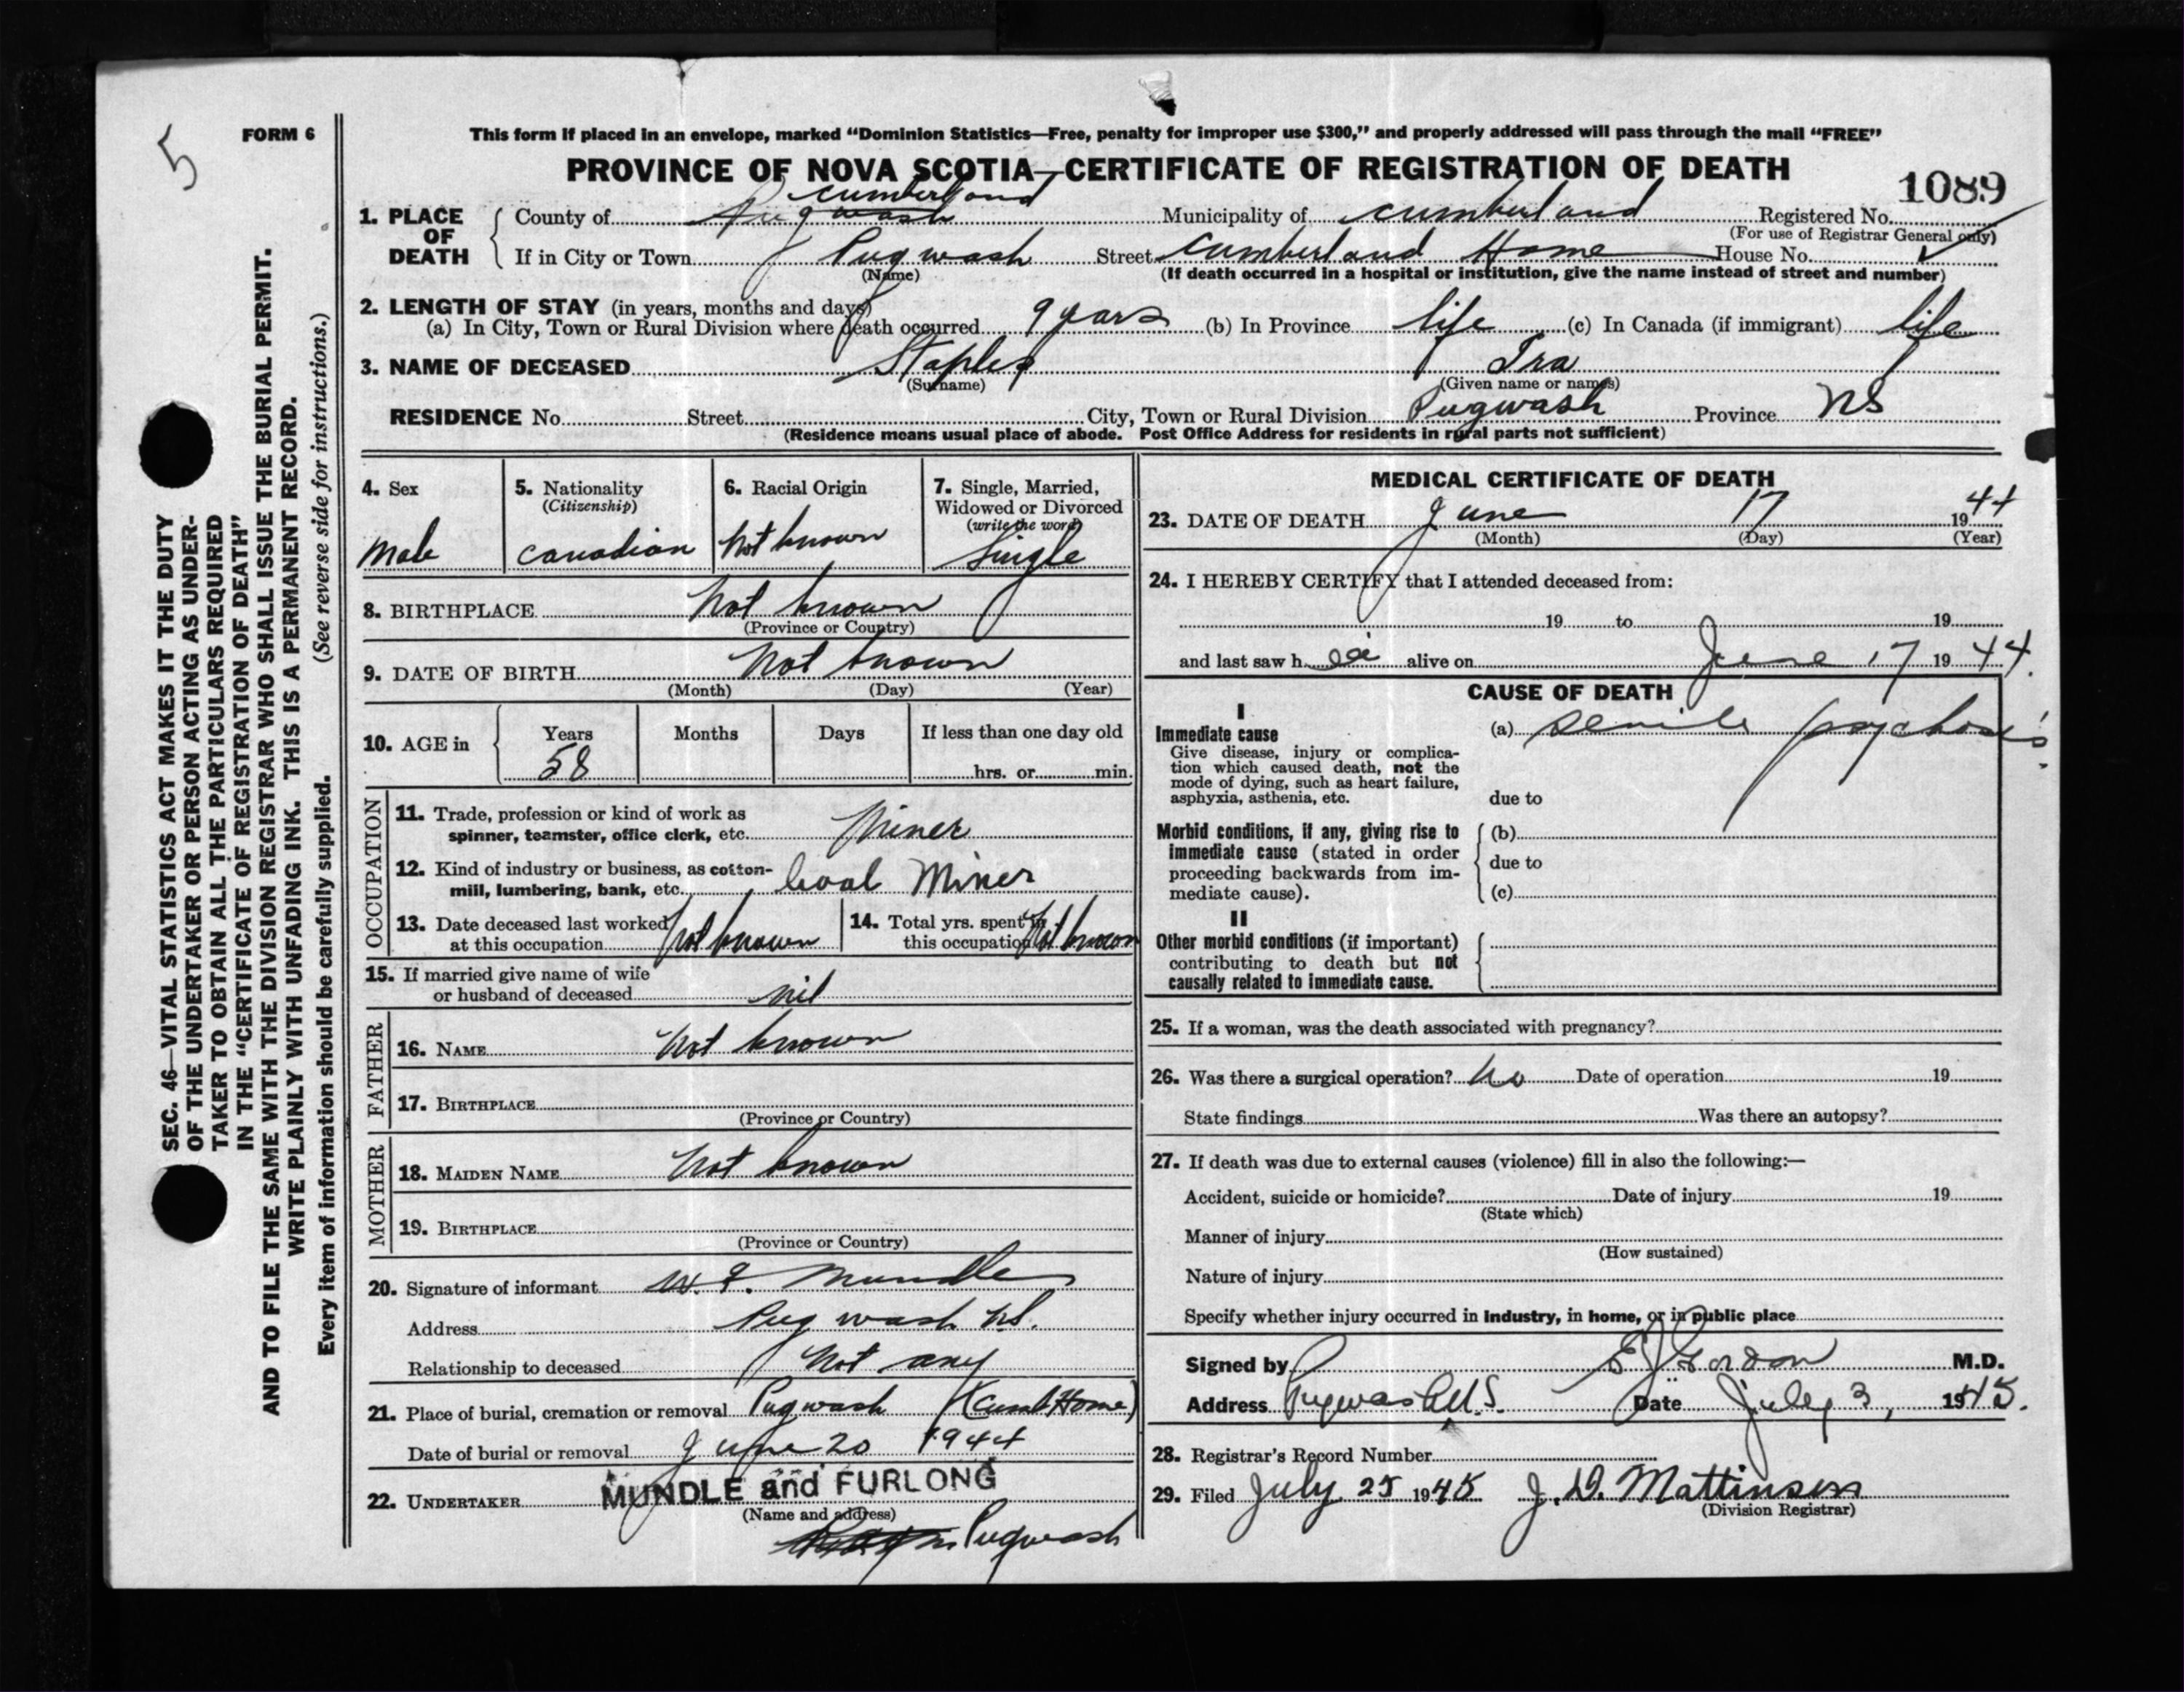 5
FORM 6
This form if placed in an envelope, marked “Dominion Statistics—Free, penalty for improper use $300,” and properly addressed will pass through the mail “FREE”
PROVINCE OF NOVA SCOTIA—CERTIFICATE OF REGISTRATION OF DEATH
1089
1. PLACE OF DEATH
County of Pugwash Cumberland Municipality of Cumberland Registered No.
(For use of Registrar General only)
If in City or Town Pugwash Street Cumberland Home House No.
(Name) (If death occurred in a hospital or institution, give the name instead of street and number)
2. LENGTH OF STAY (in years, months and days)
(a) In City, Town or Rural Division where death occurred 9 years (b) In Province life (c) In Canada (if immigrant) life
3. NAME OF DECEASED Staples Ira
(Surname) (Given name or names)
RESIDENCE No. Street City, Town or Rural Division Pugwash Province NS
(Residence means usual place of abode. Post Office Address for residents in rural parts not sufficient)
4. Sex
Male
5. Nationality
(Citizenship)
Canadian
6. Racial Origin
Not known
7. Single, Married,
Widowed or Divorced
(write the word)
Single
8. BIRTHPLACE Not known
(Province or Country)
9. DATE OF BIRTH Not known
(Month) (Day) (Year)
10. AGE in
Years Months Days If less than one day old
58 hrs. or min.
OCCUPATION
11. Trade, profession or kind of work as
spinner, teamster, office clerk, etc. Miner
12. Kind of industry or business, as cotton-
mill, lumbering, bank, etc. Coal Miner
13. Date deceased last worked
at this occupation Not known
14. Total yrs. spent in
this occupation Not known
15. If married give name of wife
or husband of deceased nil
FATHER
16. NAME Not known
17. BIRTHPLACE
(Province or Country)
MOTHER
18. MAIDEN NAME Not known
19. BIRTHPLACE
(Province or Country)
20. Signature of informant Mundle
Address Pugwash N.S.
Relationship to deceased Not any
21. Place of burial, cremation or removal Pugwash (Cumb Home)
Date of burial or removal June 20 1944
22. UNDERTAKER MUNDLE and FURLONG
(Name and address)
Pugwash
MEDICAL CERTIFICATE OF DEATH
23. DATE OF DEATH June 17 1944
(Month) (Day) (Year)
24. I HEREBY CERTIFY that I attended deceased from:
19 to 19
and last saw h alive on June 17 1944.
CAUSE OF DEATH
I
Immediate cause (a) Senile psychosis
Give disease, injury or complica-
tion which caused death, not the
mode of dying, such as heart failure,
asphyxia, asthenia, etc. due to
Morbid conditions, if any, giving rise to (b)
immediate cause (stated in order due to
proceeding backwards from im-
mediate cause). (c)
II
Other morbid conditions (if important)
contributing to death but not
causally related to immediate cause.
25. If a woman, was the death associated with pregnancy?
26. Was there a surgical operation? No Date of operation 19
State findings Was there an autopsy?
27. If death was due to external causes (violence) fill in also the following:—
Accident, suicide or homicide? Date of injury 19
(State which)
Manner of injury
(How sustained)
Nature of injury
Specify whether injury occurred in industry, in home, or in public place
Signed by E J Gordon M.D.
Address Pugwash N.S. Date July 3, 1945.
28. Registrar's Record Number
29. Filed July 25 1945 J. D. Mattinson
(Division Registrar)
SEC. 46—VITAL STATISTICS ACT MAKES IT THE DUTY
OF THE UNDERTAKER OR PERSON ACTING AS UNDER-
TAKER TO OBTAIN ALL THE PARTICULARS REQUIRED
IN THE “CERTIFICATE OF REGISTRATION OF DEATH”
AND TO FILE THE SAME WITH THE DIVISION REGISTRAR WHO SHALL ISSUE THE BURIAL PERMIT.
WRITE PLAINLY WITH UNFADING INK. THIS IS A PERMANENT RECORD.
Every item of information should be carefully supplied. (See reverse side for instructions.)